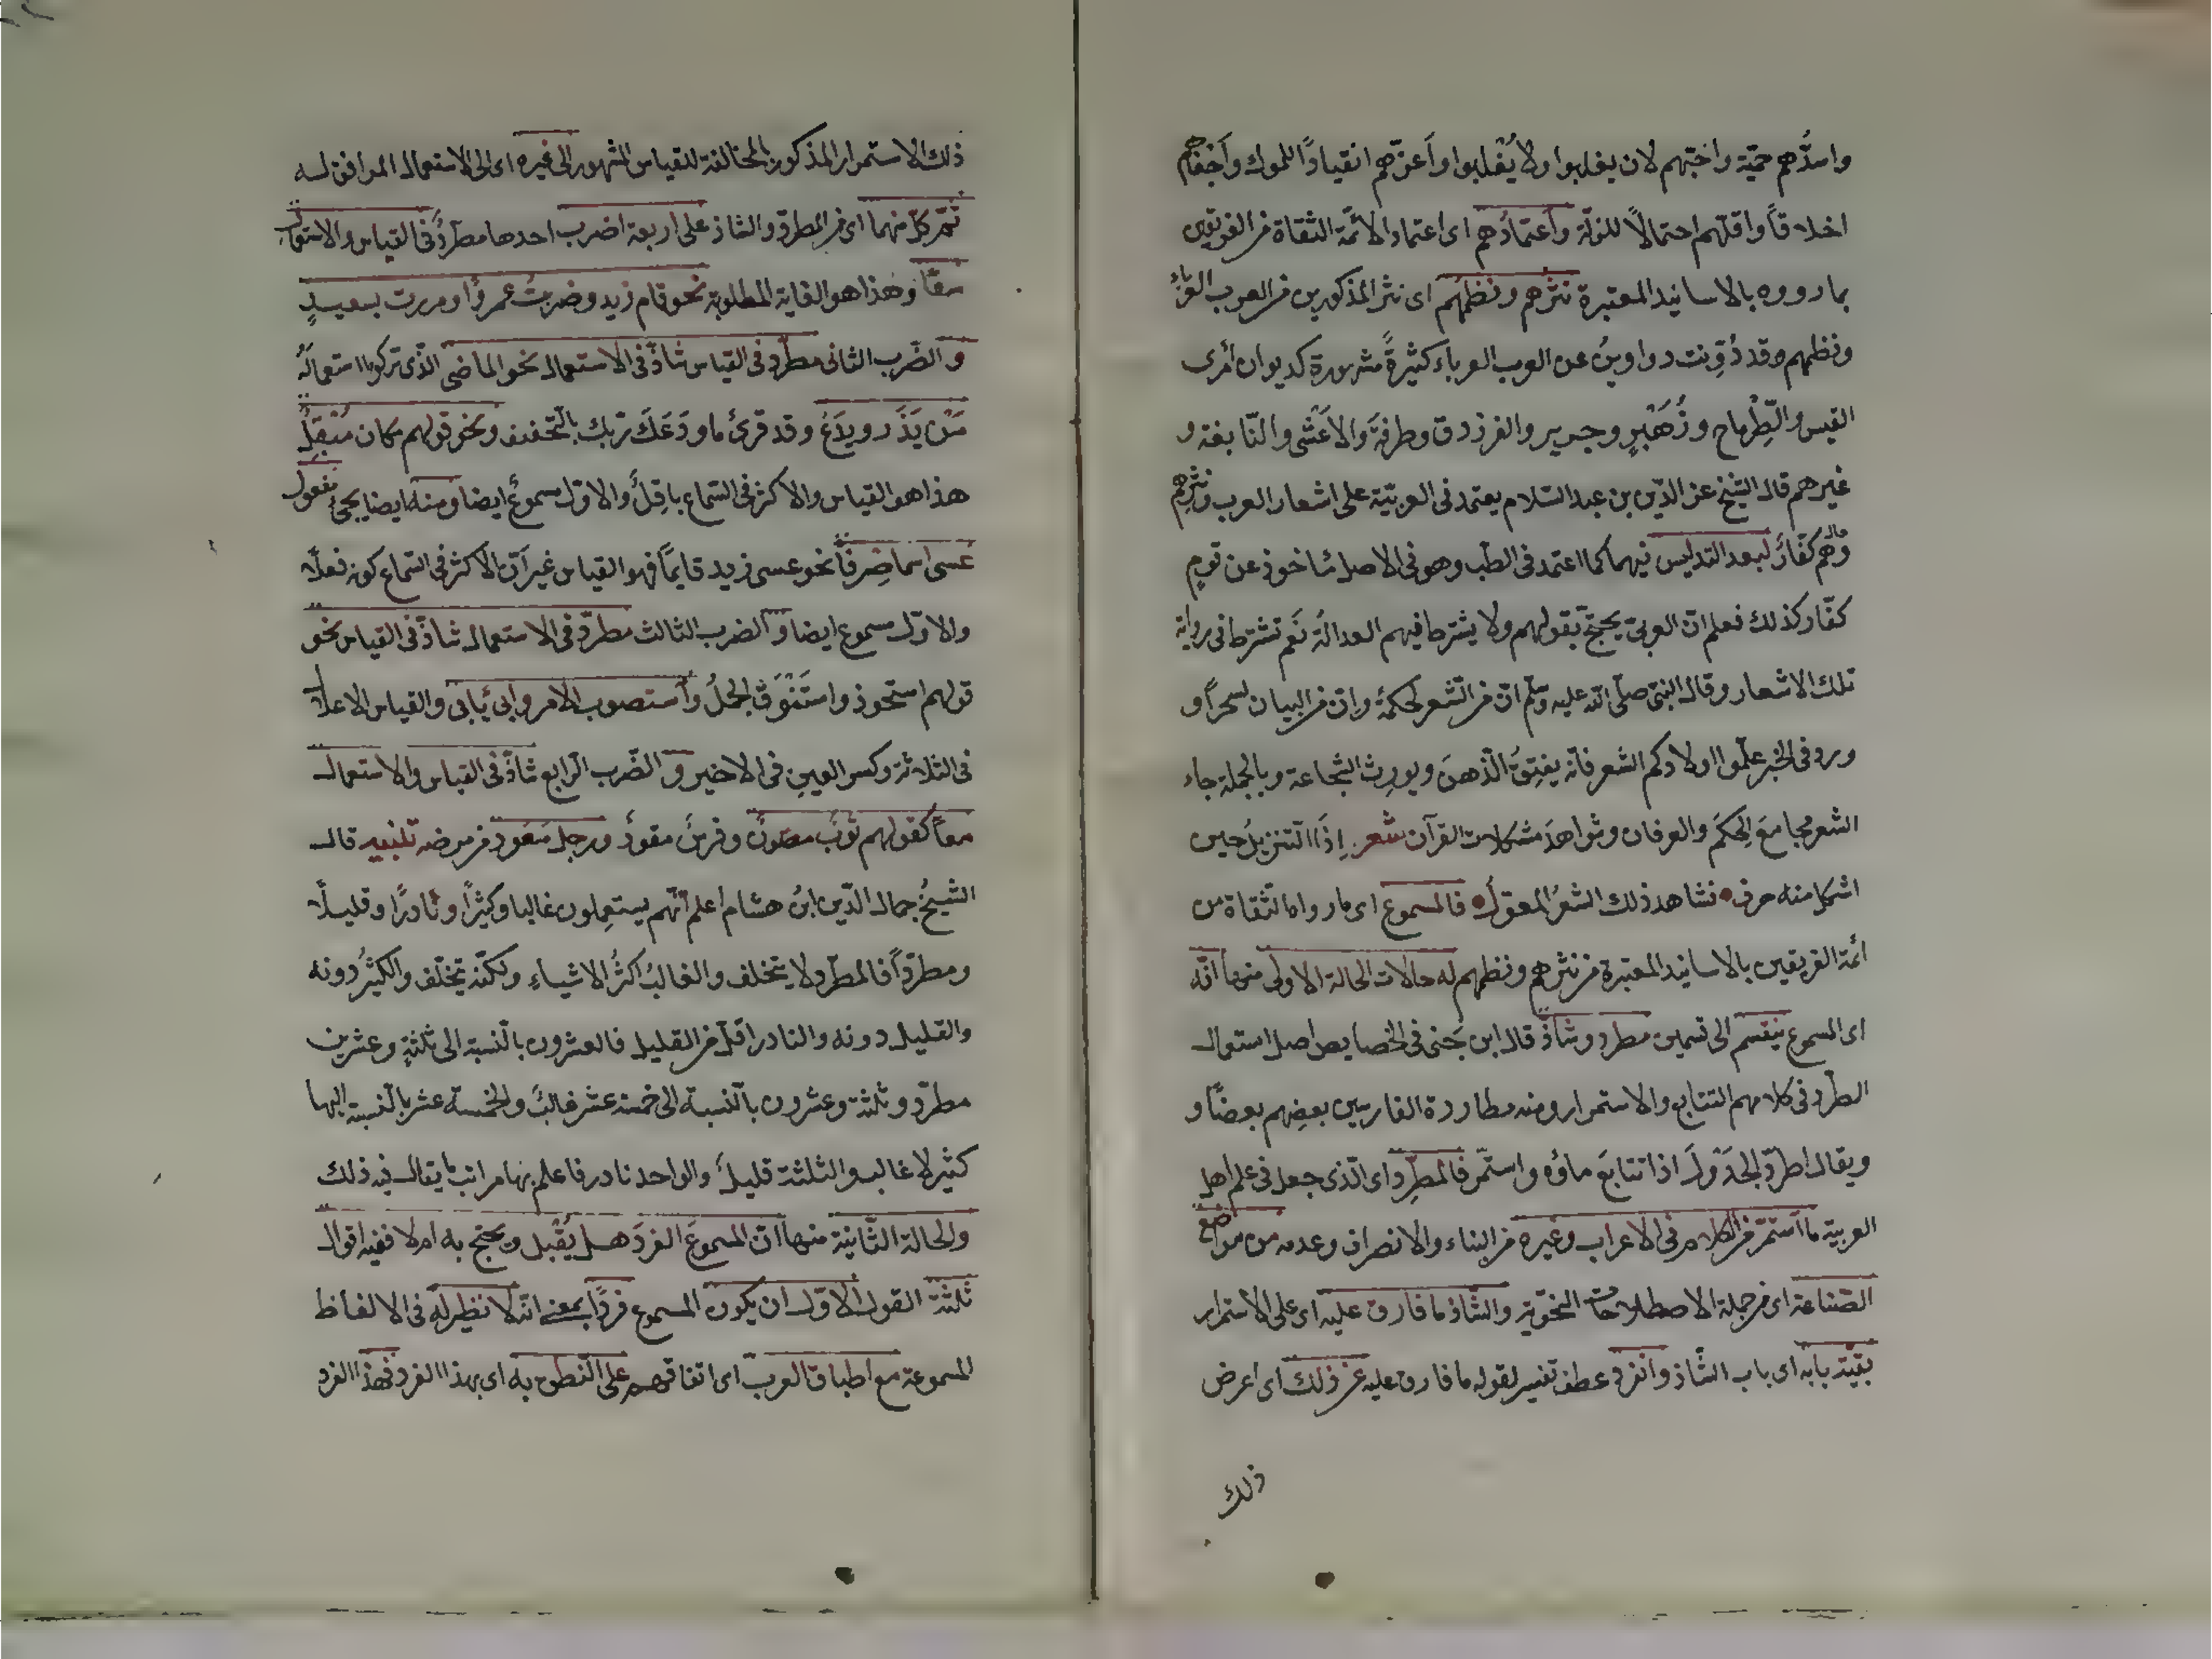 واشدّهم حميّة واحبّهم لان يغلبوا ولا يُغْلبوا وأعزّهم انقياداً للملوك وأجفاهم
اخلاقاً واقلّهم احتمالاً للذلّة واعتمادُهم اى اعتماد الائمّة الثقاة من الفريقين
بما رووه بالاسانيد المعتبرة نثرهم ونظمهم اى نثر المذكورين من العرب العرباء
ونظمهم وقد دُوّنت دواوينُ عن العرب العرباء كثيرةً مشهورة كديوان أمرى
القيس والطِّرماح وزُهَيْرٍ وجرير والفرزدق وطرفةَ والاعْشى والنّابغة و
غيرهم قال الشيخ عز الدّين بن عبد السّلام يعتمد فى العربيّة على اشعار العرب ونثرهم
وهم كفّارٌ لبعد التدليس فيهما كما اعتمد فى الطب وهو فى الاصل مأخوذ عن قومٍ
كفّار كذلك فعلم انّ العربىّ يحتجّ بقولهم ولا يشترط فيهم العدالة نَعم تشترط فى رواية
تلك الاشعار وقال النبىّ صلّى الله عليه وسلّم انّ من الشّعر لحكمةً وانّ من البيان لسحراً و
ورد فى الخبر علّموا اولادكم الشعر فانّه يفتِقُ الذّهنَ ويورِث الشجاعة وبالجملة جاء
الشعر مجامعَ الحِكَم والعرفان وشواهدَ مشكلات القرآن شعر إذا التنزيلُ حين
اشكل منه حرف • فشاهد ذلك الشعرُ المعقول • فالمسموع اى ما رواه الثّقاة من
ائمّة الفريقين بالاسانيد المعتبرة من نثرهم ونظمهم له حالات الحالة الاولى منها انّه
اى المسموع ينقسم الى قسمين مطرد وشاذّ قال ابن جَنى فى الخصايص اصل استعمال
الطّرد فى كلامهم التتابع والاستمرار ومنه مطاردة الفارسين بعضِهم بعضًا و
ويقال اطرّد الجَدْولُ اذا تتابعَ ماؤه واستمّر فالمطرِد اى الّذى جعل فى علم اهل
العربيّة ما استمّر من الكلام فى الاعراب وغيره من البناء والانصراف وعدمه من مواضع
الصّناعة اى من جملة الاصطلاحات النحويّة والشّاذ ما فارق عليه اى على الاستمرار
بقيّة بابه اى باب الشّاذ وانفرد عطف تفسير لقوله ما فارق عليه عن ذلك اى اعرض
ذلك
ذلك الاستمرار المذكور بالمخالفة للقياس المشهور الى غيره اى الى الاستعمال الموافق له
ثمّ كلّ منهما اى من المطرّد والشاذ على اربعة اضرب احدها مطرّدٌ فى القياس والاستعمال
معًا وهذا هو الغاية المطلوبة نحو قام زيد وضربتُ عمروًا ومررت بسعيدٍ
و الضّرب الثانى مطرّد فى القياس شاذّ فى الاستعمال نحو الماضى الّذى تركوا استعمالَه
مِنْ يَذَر ويدَعُ وقد قرئ ما ودَعَكَ ربّك بالتّخفيف ونحو قولهم مكان مُبْقِلٌ
هذا هو القياس والاكثر فى السّماع باقِلٌ والاوّل مسموعٌ ايضا ومنه ايضا يجئ مفعول
عَسى اسما صِرفًا نحو عسى زيد قايمًا فهو القياس غير أنّ الاكثر فى السّماع كونه فعلًا
والاوّل مسموع ايضا و الضرب الثالث مطرّد فى الاستعمال شاذّ فى القياس نحو
قولهم استحوذ واستَنْوَق الجملُ وأستصوب الامر وابى يأبى والقياس الاعلال
فى الثلاثة وكسر العين فى الاخير و الضّرب الرابع شاذّ فى القياس والاستعمال
معاً كقولهم ثوبٌ مصوونٌ وفرسٌ مقوودٌ ورجل معوود من مرضه تلنبيه قال
الشّيخُ جمال الدّين ابنُ هشام اعلم انّهم يستعمِلون غالبا وكثيرًا ونادرًا وقليلًا
ومطرّداً فالمطّرد لا يتخلف والغالبُ اكثرُ الاشياءِ ولكنّه يتخلّف والكثيرُ دونه
والقليل دونه والنادر اقلّ من القليل فالعشرون بالنّسبة الى ثلثةٍ وعشرين
مطرّد وثلثة وعشرون بالنّسبة الى خمسة عشر غالبٌ والخمسة عشر بالنّسبة اليها
كثير لا غالب والثلثة قليلٌ والواحد نادر فاعلم بهذا مراتب ما يقال فيه ذلك
والحالة الثّانية منها انّ المسموعَ الفردَ هل يُقْبل ويحتج به ام لا ففيه اقوال
ثلثة القول الاوّل ان يكون المسموع فردًا بمعنى انّه لا نظير له فى الالفاظ
المسموعة مع اطباق العرب اى اتفاقهم على النّطق به اى بهذا الفرد فهذا الفرد